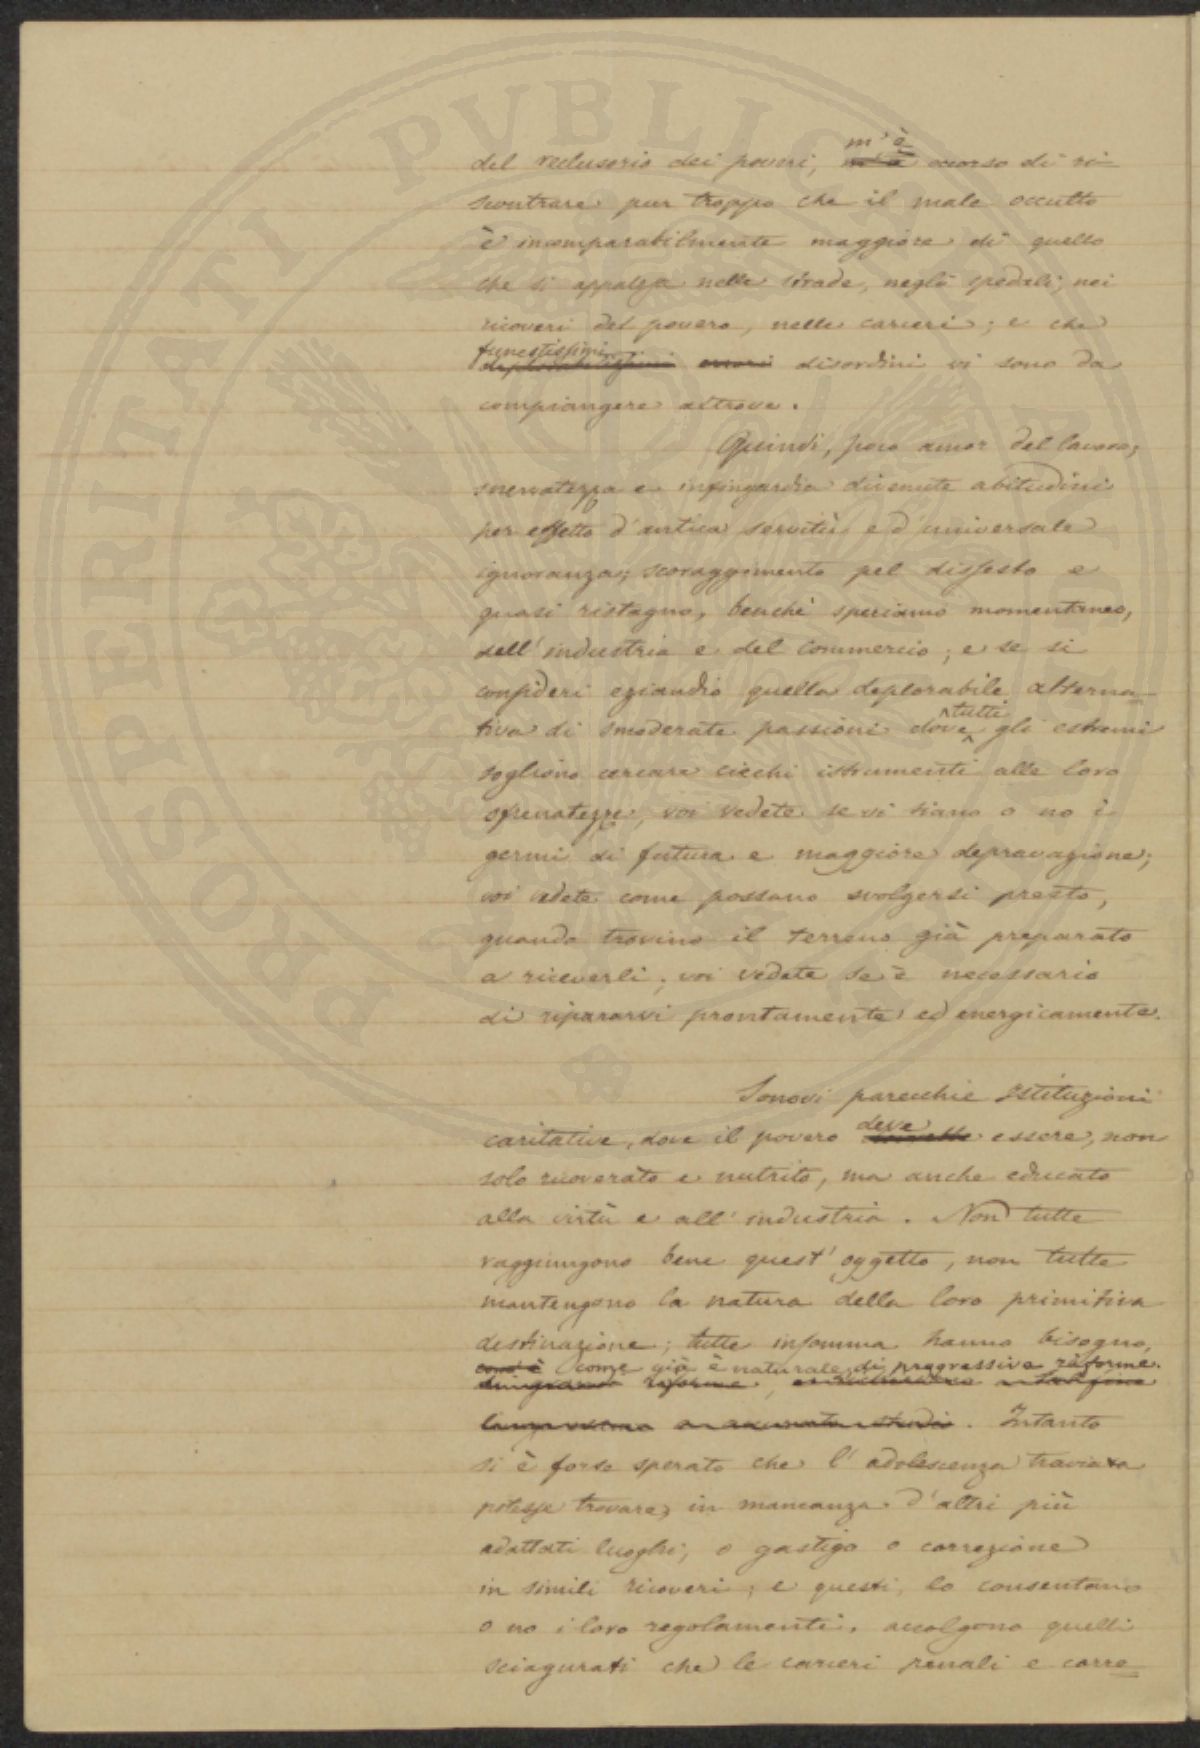 del reclusorio dei poveri, m'è occorso di ri-
scontrare pur troppo che il male occulto
è incomparabilmente maggiore di quello
che si appalesa nelle strade, negli spedali, nei
ricoveri del povero, nelle carceri; e che
funestissimi errori disordini vi sono da
compiangere altrove.
Quindi, poco amor del lavoro;
snervatezza e infingardia divenute abitudini
per effetto d'antica servitù e d'universale
ignoranza; scoraggimento pel dissesto e
quasi ristagno, benché speriamo momentaneo,
dell'industria e del commercio; e se si
consideri eziandio quella deplorabile alterna-
tiva di smoderate passioni dove tutti gli estremi
sogliono cercare ciechi istrumenti alle loro
sfrenatezze, voi vedete se vi siano o no i
germi di futura e maggiore depravazione;
voi vedete come possano svolgersi presto,
quando trovino il terreno già preparato
a riceverli; voi vedete se è necessario
di ripararvi prontamente ed energicamente.
Sonovi parecchie Istituzioni
caritative, dove il povero deve essere, non
solo ricoverato e nutrito, ma anche educato
alla virtù e all'industria. Non tutte
raggiungono bene quest'oggetto, non tutte
mantengono la natura della loro primitiva
destinazione; tutte insomma hanno bisogno,
come già è naturale, di progressive riforme.
riforme
studio. Intanto
si è forse sperato che l'adolescenza traviata
potesse trovare, in mancanza d'altri più
adattati luoghi, o gastigo o correzione
in simili ricoveri; e questi, lo consentano
o no i loro regolamenti, accolgono quelli
sciagurati che le carceri penali e corre-
PROSPERITATI PUBLICAE